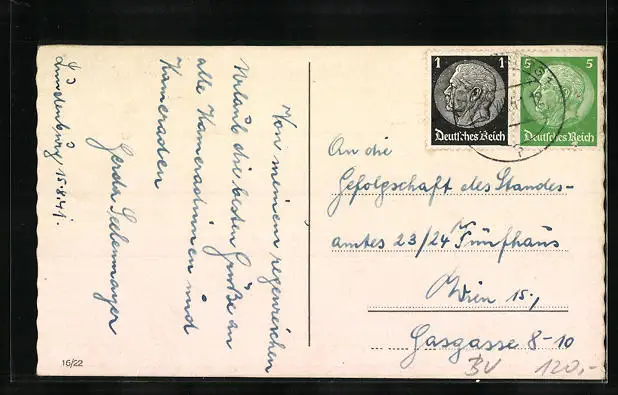 Lundenburg 15.8.41.
Von meinem regenreichen
Urlaub die besten Grüße an
alle Kameradinnen und
Kameraden
Gerda Seelenmayer
16/22
1 1
Deutsches Reich
5 5
Deutsches Reich
An die
Gefolgschaft des Standes-
amtes 23/24 Fünfhaus
Wien 15.,
Gasgasse 8-10
BV 120,-